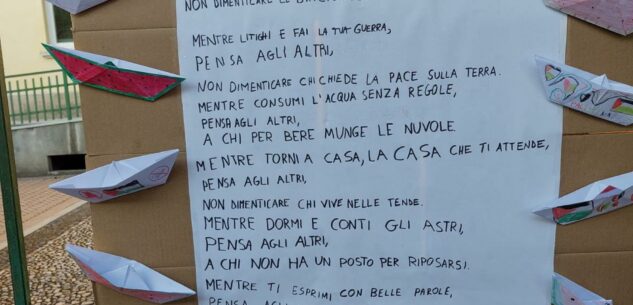 NON DIMENTICARE LE
MENTRE LITIGHI E FAI LA TUA GUERRA,
PENSA AGLI ALTRI,
NON DIMENTICARE CHI CHIEDE LA PACE SULLA TERRA.
MENTRE CONSUMI L'ACQUA SENZA REGOLE,
PENSA AGLI ALTRI,
A CHI PER BERE MUNGE LE NUVOLE.
MENTRE TORNI A CASA, LA CASA CHE TI ATTENDE,
PENSA AGLI ALTRI,
NON DIMENTICARE CHI VIVE NELLE TENDE.
MENTRE DORMI E CONTI GLI ASTRI,
PENSA AGLI ALTRI,
A CHI NON HA UN POSTO PER RIPOSARSI.
MENTRE TI ESPRIMI CON BELLE PAROLE,
PENSA AGLI